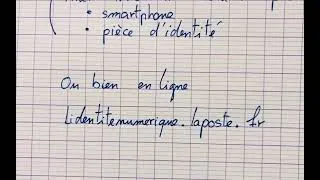 • smartphone
• pièce d'identité
Ou bien en ligne
lidentitenumerique.laposte.fr